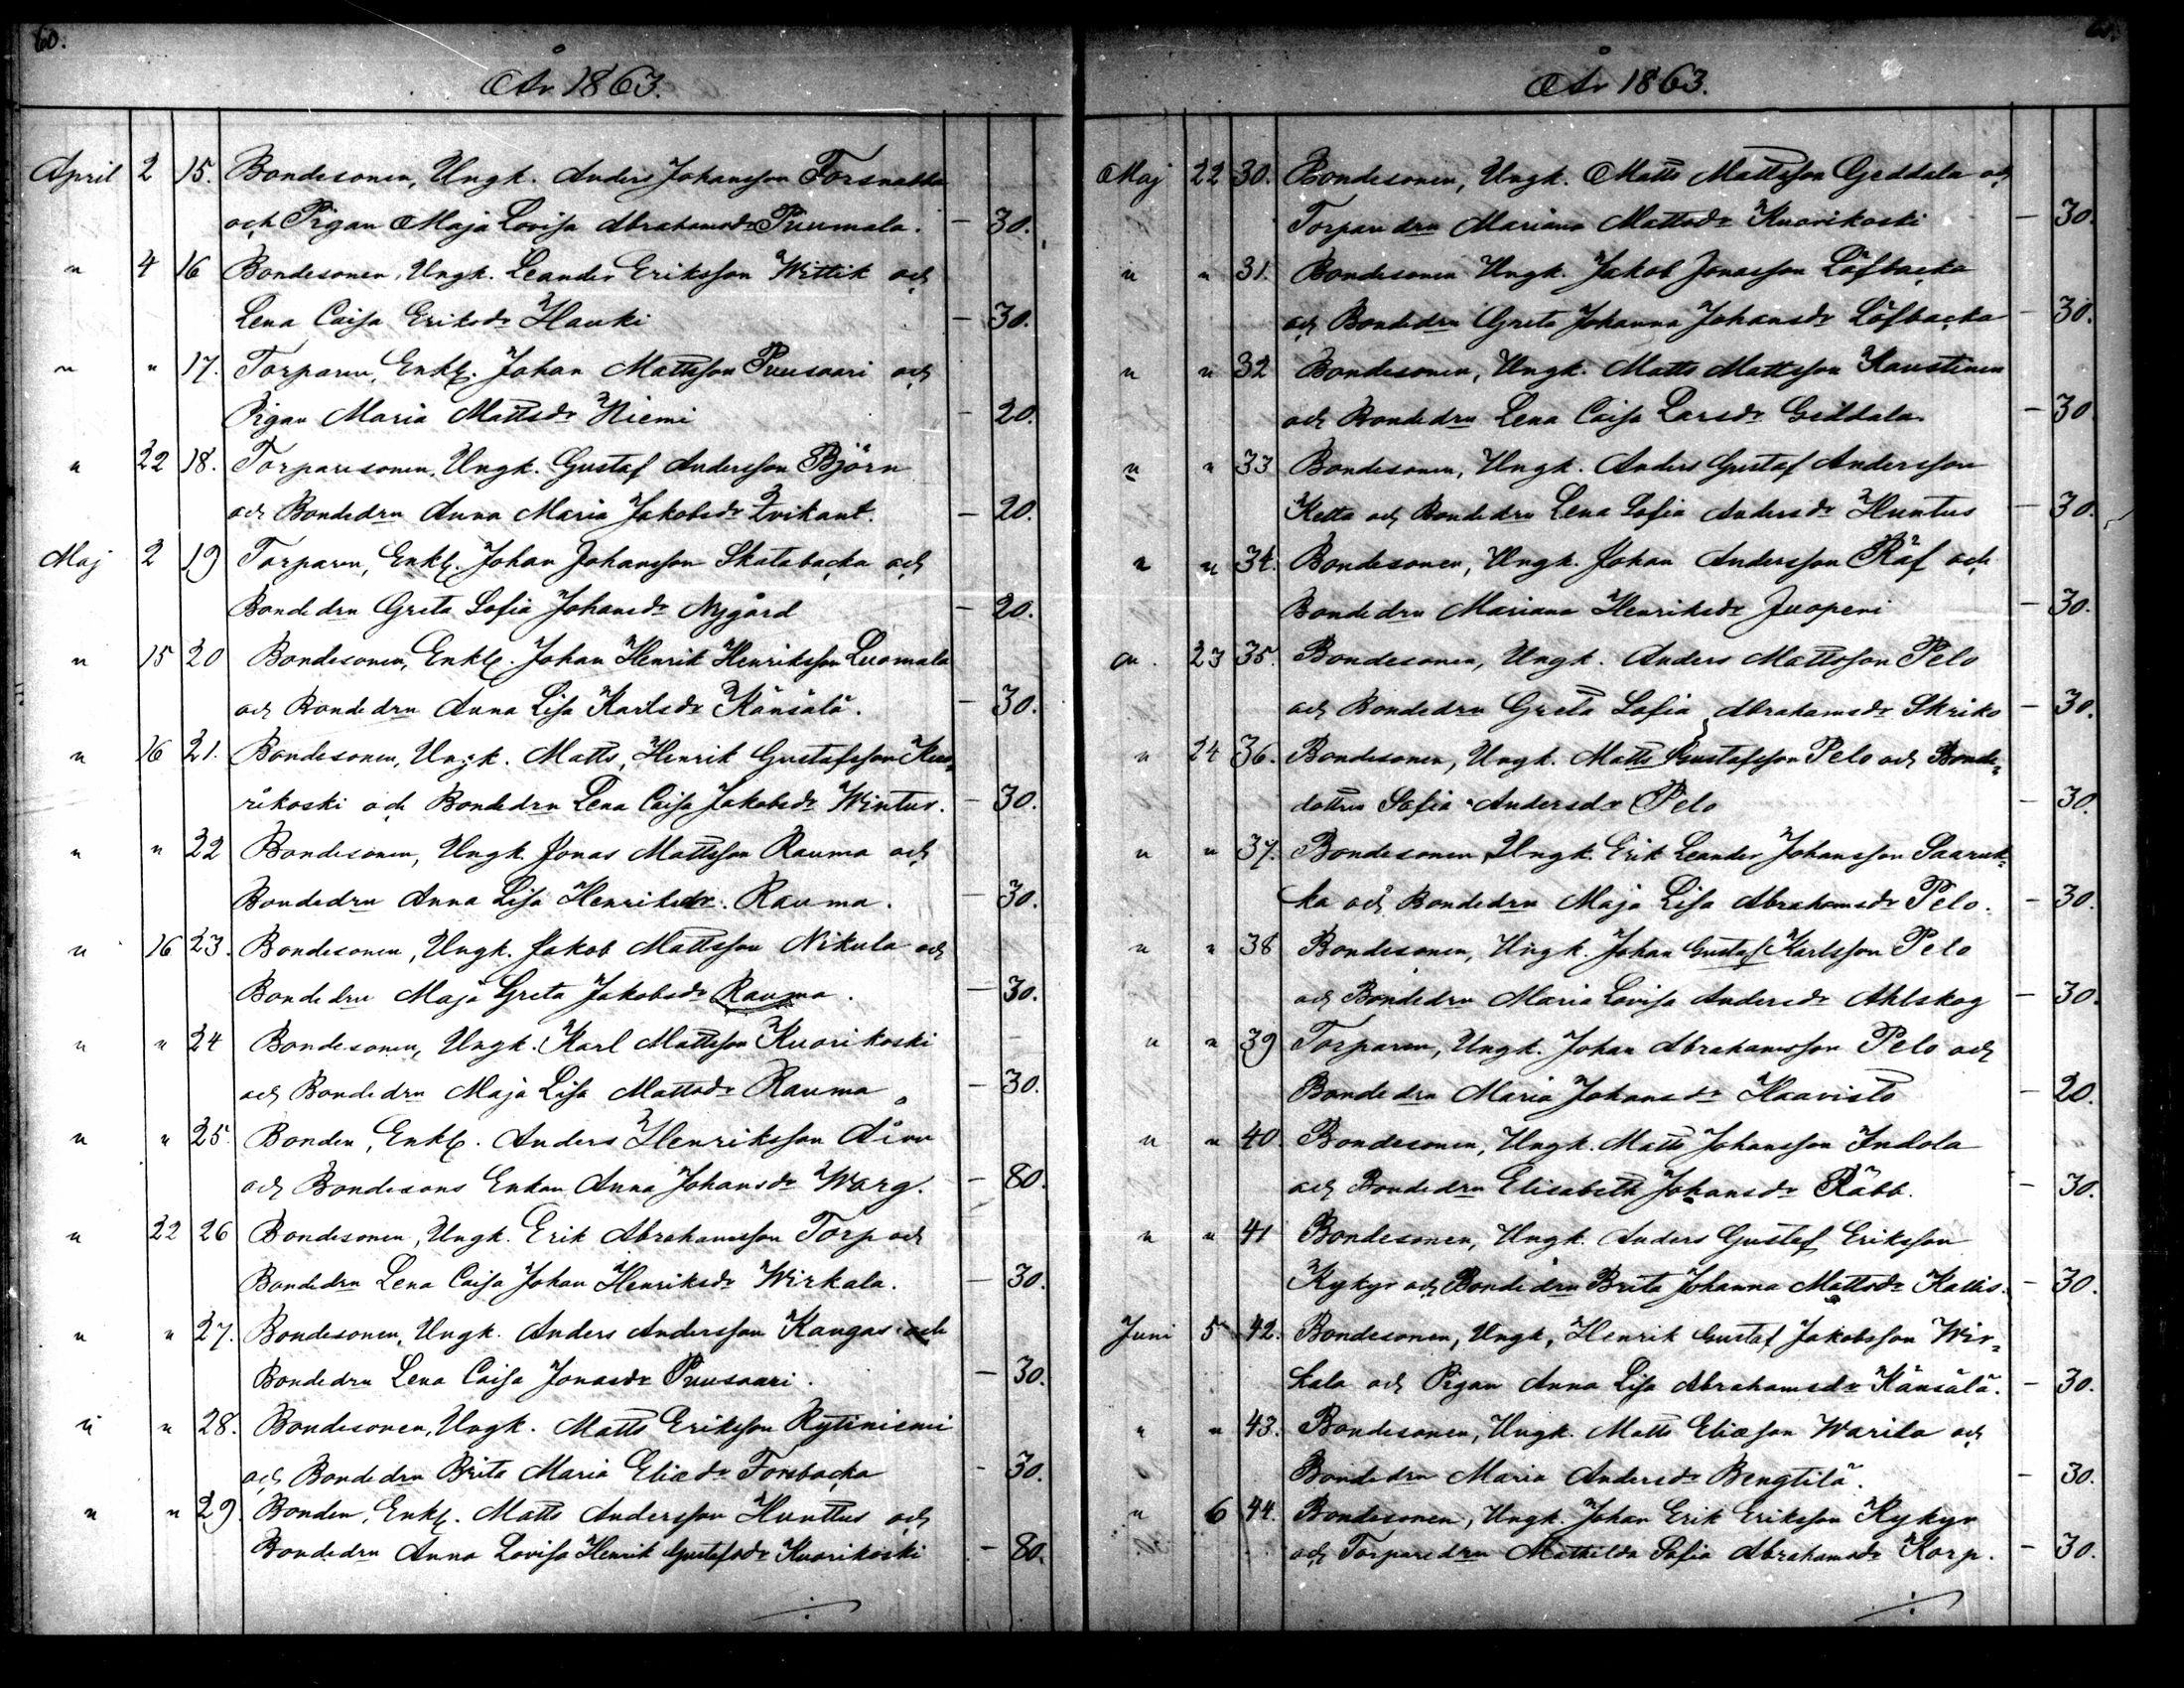 60.
År 1863.
April 2 15. Bondesonen, Ungk. Anders Johansson Forsnabba
och Pigan Maja Lovisa Abrahamsdr Puumala. — 30.
" 4 16 Bondesonen, Ungk. Leander Eriksson Wittik och
Lena Caisa Eriksdr Hauki — 30.
" " 17. Torparen, Enkl. Johan Mattsson Puusaari och
Pigan Maria Mattsdr Niemi — 20.
" 22 18. Torparesonen, Ungk. Gustaf Andersson Björn
och Bondedrn Anna Maria Jakobsdr Qvikant. — 20.
Maj 2 19 Torparen, Enkl. Johan Johansson Skatabacka och
Bondedrn Greta Sofia Johansdr Nygård — 20.
" 15 20 Bondesonen, Enkl. Johan Henrik Henriksson Luomala
och Bondedrn Anna Lisa Karlsdr Känsälä. — 30.
" 16 21. Bondesonen, Ungk. Matts Henrik Gustafsson Kuo-
rikoski och Bondedrn Lena Caisa Jakobsdr Wintur. — 30.
" " 22 Bondesonen, Ungk. Jonas Mattsson Rauma och
Bondedrn Anna Lisa Henriksdr Rauma. — 30.
" 16 23. Bondesonen, Ungk. Jakob Mattsson Nikula och
Bondedrn Maja Greta Jakobsdr Rauma. — 30.
" " 24 Bondesonen, Ungk. Karl Mattsson Kuorikoski
och Bondedrn Maja Lisa Mattsdr Rauma — 30.
" " 25. Bonden, Enkl. Anders Henriksson
och Bondesons Enkan Anna Johansdr Warg. — 80.
" 22 26 Bondesonen, Ungk. Erik Abrahamsson Torp och
Bondedrn Lena Caisa Johan Henriksdr Wirkala. — 30.
" " 27. Bondesonen, Ungk. Anders Andersson Kangas och
Bondedrn Lena Caisa Jonasdr Puusaari. — 30.
" " 28. Bondesonen, Ungk. Matts Eriksson Rytiniemi
och Bondedrn Brita Maria Eliædr Forsbacka — 30.
" " 29. Bonden, Enkl. Matts Andersson Hunttus och
Bondedrn Anna Lovisa Henrik Gustafsdr Kuorikoski — 80.
År 1863.
Maj 22 30. Bondesonen, Ungk. Matts Mattsson Geddala och
Torparedrn Mariana Mattsdr Kuorikoski — 30.
" " 31. Bondesonen Ungk. Jakob Jonasson Löfbacka
och Bondedrn Greta Johanna Johansdr Löfbacka — 30.
" " 32 Bondesonen, Ungk. Matts Mattsson Kaustinen
och Bondedrn Lena Caisa Larsdr Geddala. — 30
" " 33 Bondesonen, Ungk. Anders Gustaf Andersson
Ketta och Bondedrn Lena Sofia Andersdr Huntus — 30.
" " 34. Bondesonen, Ungk. Johan Andersson Räf och
Bondedrn Mariana Henriksdr Juopeni — 30.
" 23 35. Bondesonen, Ungk. Anders Mattsson Pelo
och Bondedrn Greta Sofia Abrahamsdr Skriko — 30.
" 24 36. Bondesonen, Ungk. Matts Gustafsson Pelo och Bonde-
dottren Sofia Andersdr Pelo — 30
" " 37. Bondesonen, Ungk. Erik Leander Johansson Saaruk-
ka och Bondedrn Maja Lisa Abrahamsdr Pelo. — 30.
" " 38 Bondesonen, Ungk. Johan Gustaf Karlsson Pelo
och Bondedrn Maria Lovisa Andersdr Ahlskog — 30.
" " 39 Torparen, Ungk. Johan Abrahamsson Pelo och
Bondedrn Maria Johansdr Haavisto — 20.
" " 40. Bondesonen, Ungk. Matts Johansson Indola
och Bondedrn Elisabeth Johansdr Räbb. — 30.
" " 41 Bondesonen, Ungk. Anders Gustaf Eriksson
Kykyr och Bondedrn Brita Johanna Mattsdr Kattis. — 30.
Juni 5 42. Bondesonen, Ungk, Henrik Gustaf Jakobsson Wir-
kala och Pigan Anna Lisa Abrahamsdr Känsälä. — 30.
" " 43. Bondesonen, Ungk. Matts Eliæson Warila och
Bondedrn Maria Andersdr Bengtilä. — 30.
" 6 44. Bondesonen, Ungk. Johan Erik Eriksson Kykyr
och Torparedrn Mathilda Sofia Abrahamsdr Korp. — 30.